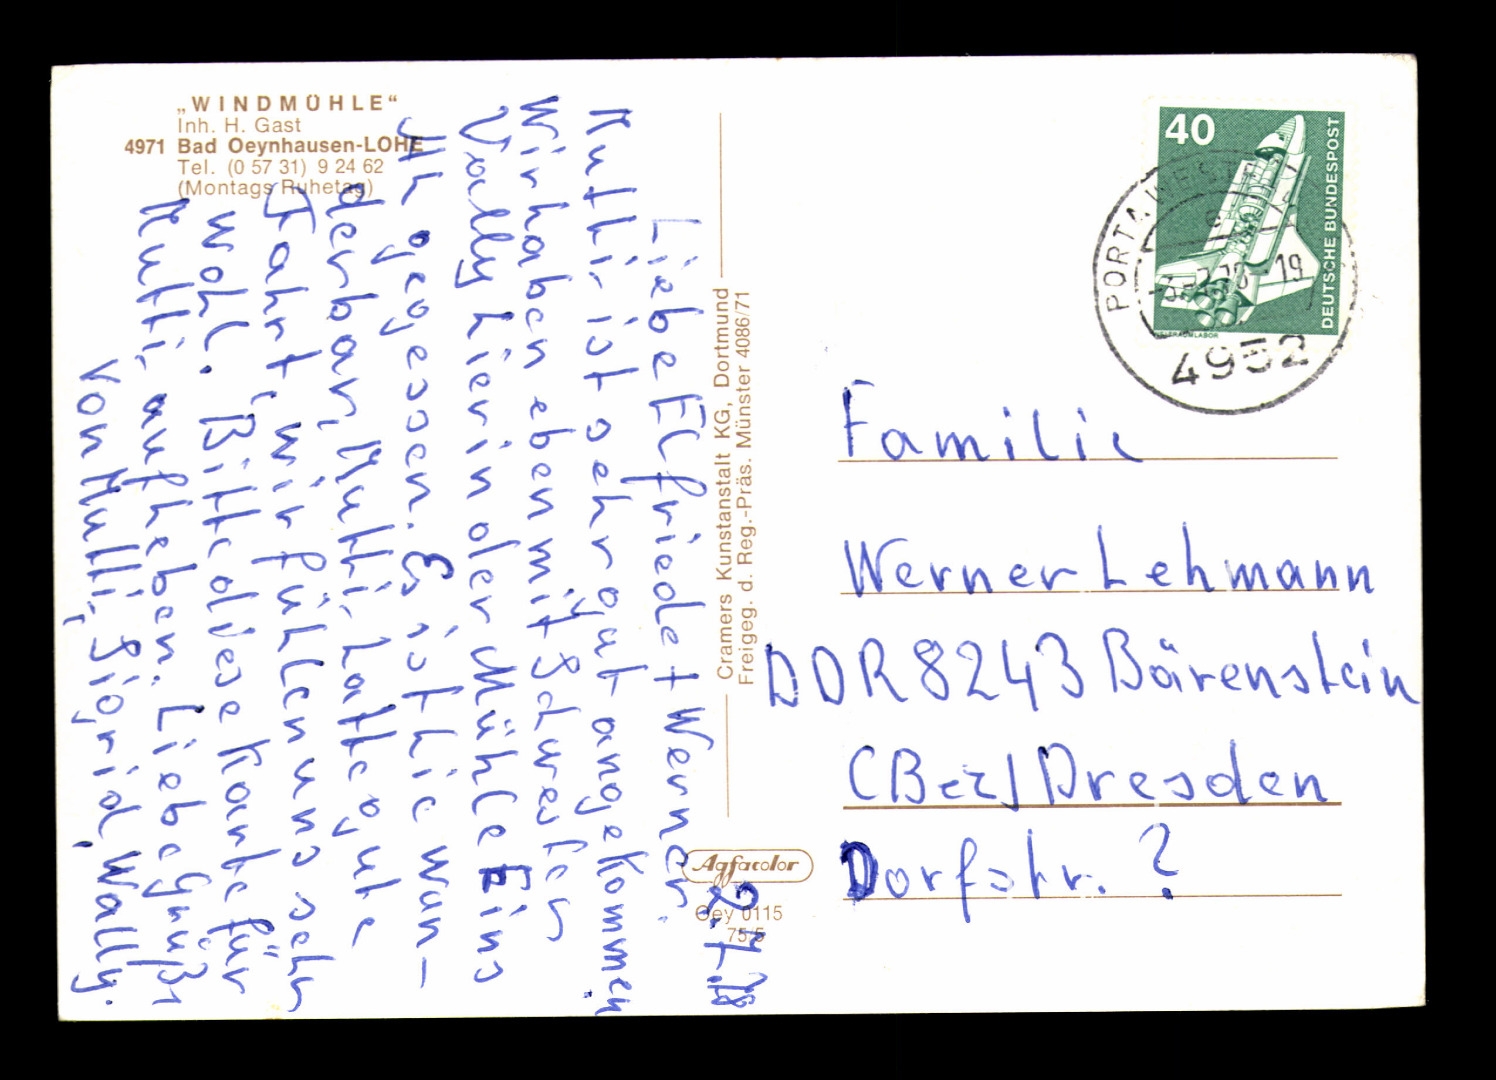 „WINDMÜHLE“
Inh. H. Gast
4971 Bad Oeynhausen-LOHE
Tel. (0 57 31) 9 24 62
(Montags Ruhetag)
2.7.78
Liebe Elfriede + Werner.
Mutti ist sehr gut angekommen
Wir haben eben mit Schwester
Vally hier in der Mühle Eins
gegessen. Es ist hie wun-
derbar, Mutti hatte gute
Fahrt, wir fühlen uns sehr
wohl. Bitte diese Karte für
Mutti aufheben. Liebe Grüße
von Mutti, Sigrid, Wally.
Cramers Kunstanstalt KG, Dortmund
Freigeg. d. Reg.-Präs. Münster 4086/71
Agfacolor
Oey 0115
75/5
40
DEUTSCHE BUNDESPOST
PORTA WEST
-19
4952
Familie
Werner Lehmann
DDR 8243 Bärenstein
(Bez) Dresden
Dorfstr. ?